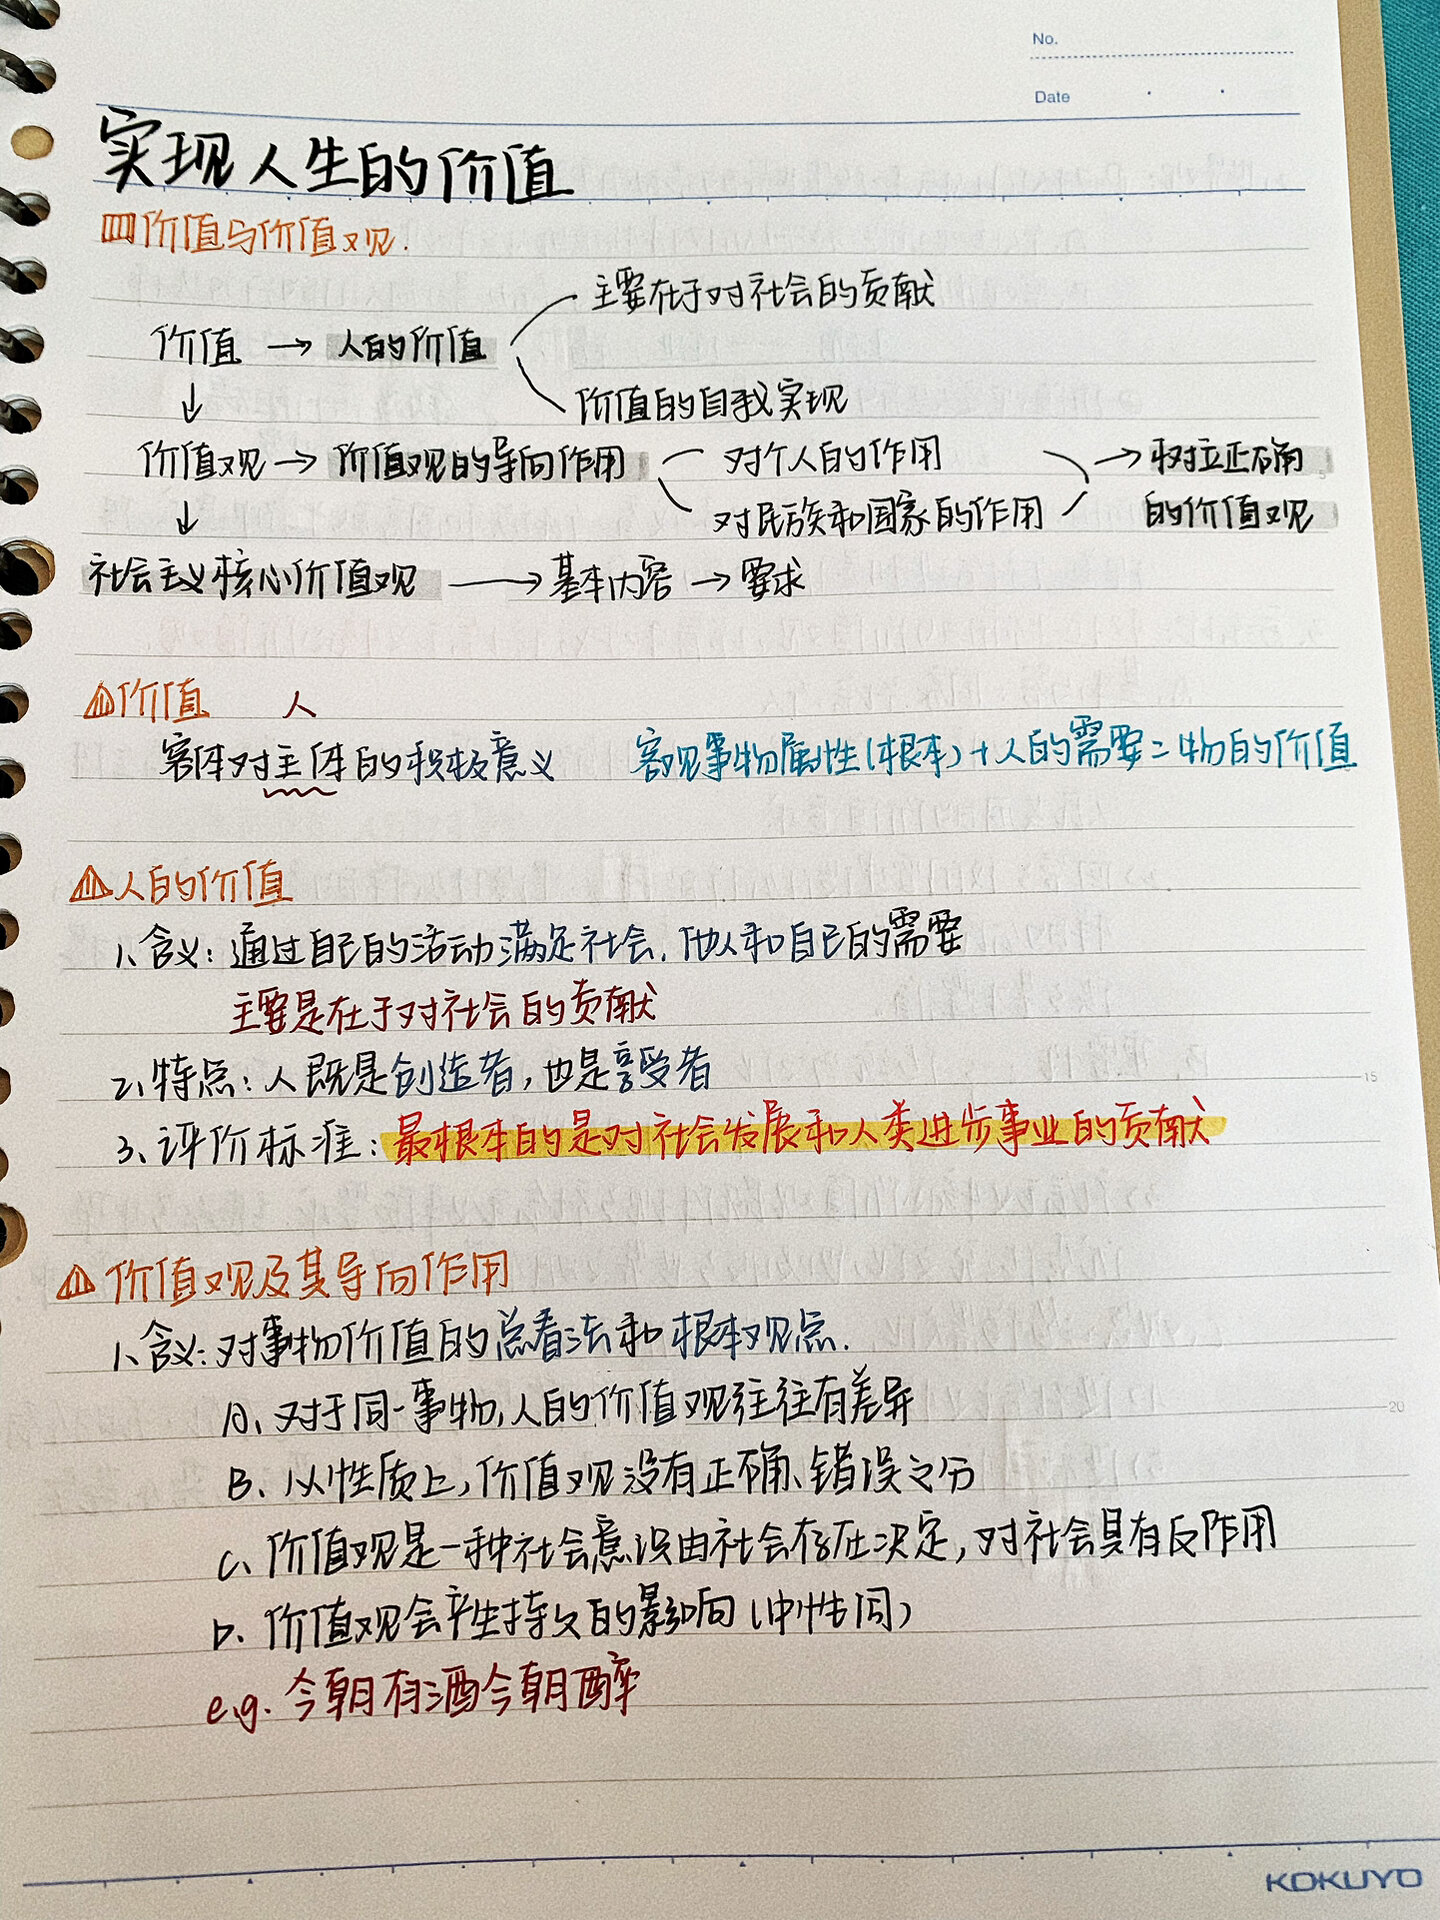 No.
Date
实现人生的价值
价值与价值观.
主要在于对社会的贡献
价值 → 人的价值
↓
价值的自我实现
价值观 → 价值观的导向作用 对个人的作用 → 树立正确
↓
对民族和国家的作用 的价值观
社会主义核心价值观 → 基本内容 → 要求
价值 人
客体对主体的积极意义 客观事物属性(根本)+人的需要=物的价值
人的价值
1、含义：通过自己的活动满足社会、他人和自己的需要
主要是在于对社会的贡献
2、特点：人既是创造者，也是享受者
3、评价标准：最根本的是对社会发展和人类进步事业的贡献
价值观及其导向作用
1、含义：对事物价值的总看法和根本观点.
A、对于同一事物，人的价值观往往有差异
B、从性质上，价值观没有正确、错误之分
C、价值观是一种社会意识由社会存在决定，对社会具有反作用
D、价值观会产生持久的影响(中性词)
e.g. 今朝有酒今朝醉
15
20
KOKUYO